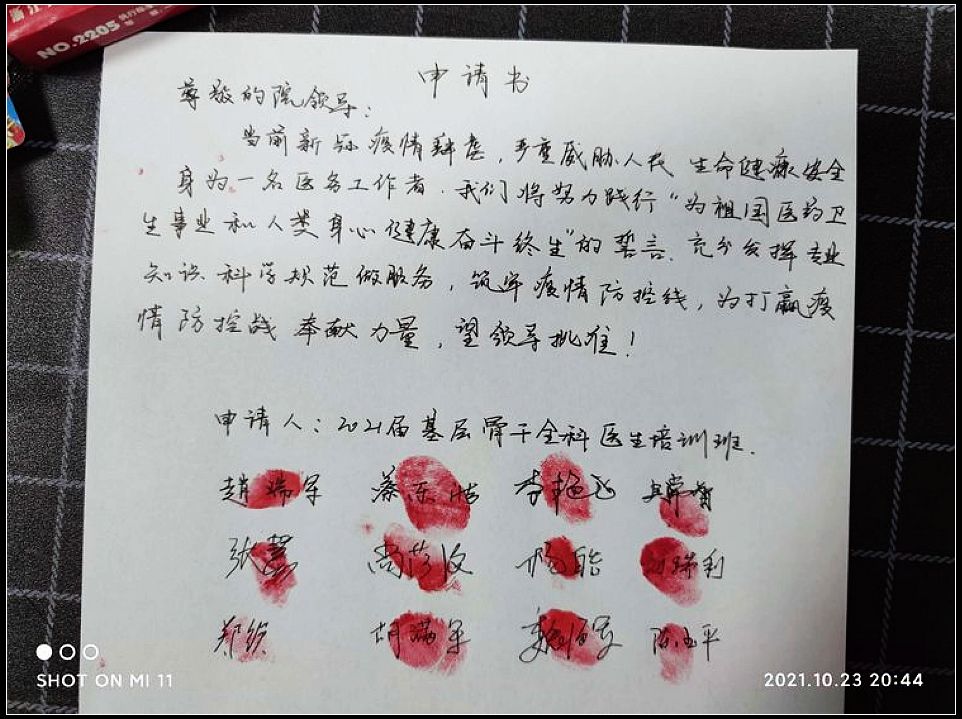 NO.2205
申请书
尊敬的院领导：
当前新冠疫情肆虐，严重威胁人民生命健康安全
身为一名医务工作者．我们将努力践行“为祖国医药卫
生事业和人类身心健康奋斗终生”的誓言、充分发挥专业
知识、科学规范做服务，筑牢疫情防控线，为打赢疫
情防控战奉献力量，望领导批准！
申请人：2021届基层骨干全科医生培训班．
赵瑞军 李艳飞
张慧 尚莎汶 杨能 刘瑞利
郑红 胡满军 陈玉平
SHOT ON MI 11
2021.10.23 20:44